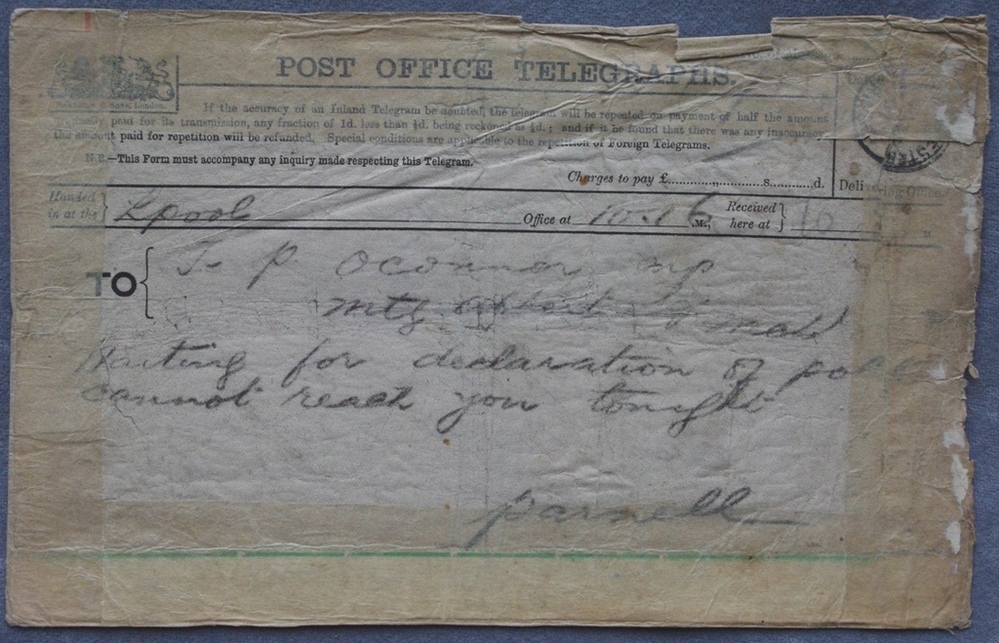 POST OFFICE TELEGRAPHS.
If the accuracy of an Inland Telegram be doubted, the telegram will be repeated on payment of half the amount
paid for its transmission, any fraction of 1d. less than ½d. being reckoned as ½d.; and if it be found that there was any inaccuracy
the amount paid for repetition will be refunded. Special conditions are applicable to the repetition of Foreign Telegrams.
N.B.—This Form must accompany any inquiry made respecting this Telegram.
Charges to pay £ s. d.
Handed in at the } Lpool Office at 10.16 M., Received here at } 10
TO { T P Oconnor mp
mtg
Waiting for declaration of poll
cannot reach you tonight
Parnell